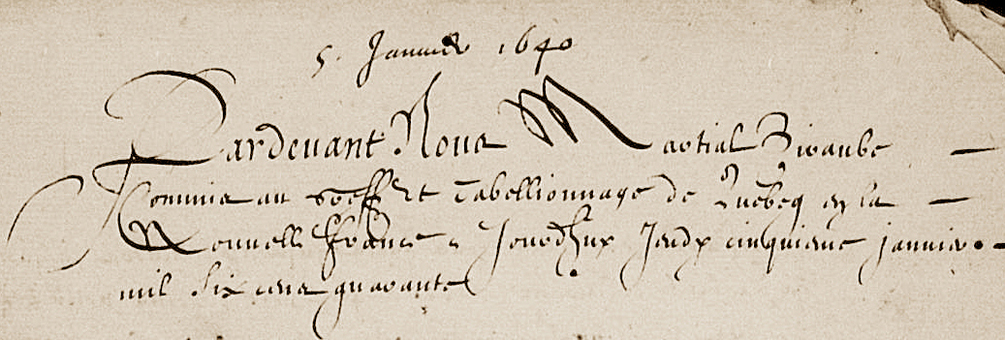 5. Januier 1640
Pardeuant Nous Martial Piraube
Commis au Greffe et Tabellionnage de Quebecq en la
Nouuelle France, Jourdhuy Jeudy cinquieme januier
mil six cens quarante